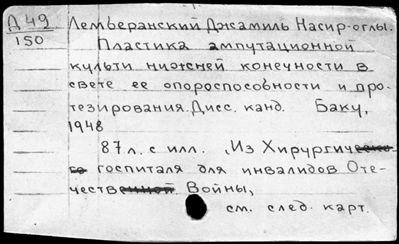 Д 49
150
Лемберанский Джамиль Насир-оглы.
Пластика ампутационной
культи нижней конечности в
свете ее опороспособности и про-
тезирования. Дисс. канд. Баку,
1948
87 л. с илл. Из Хирургичес
госпиталя для инвалидов Оте-
честв Войны,
см. след. карт.